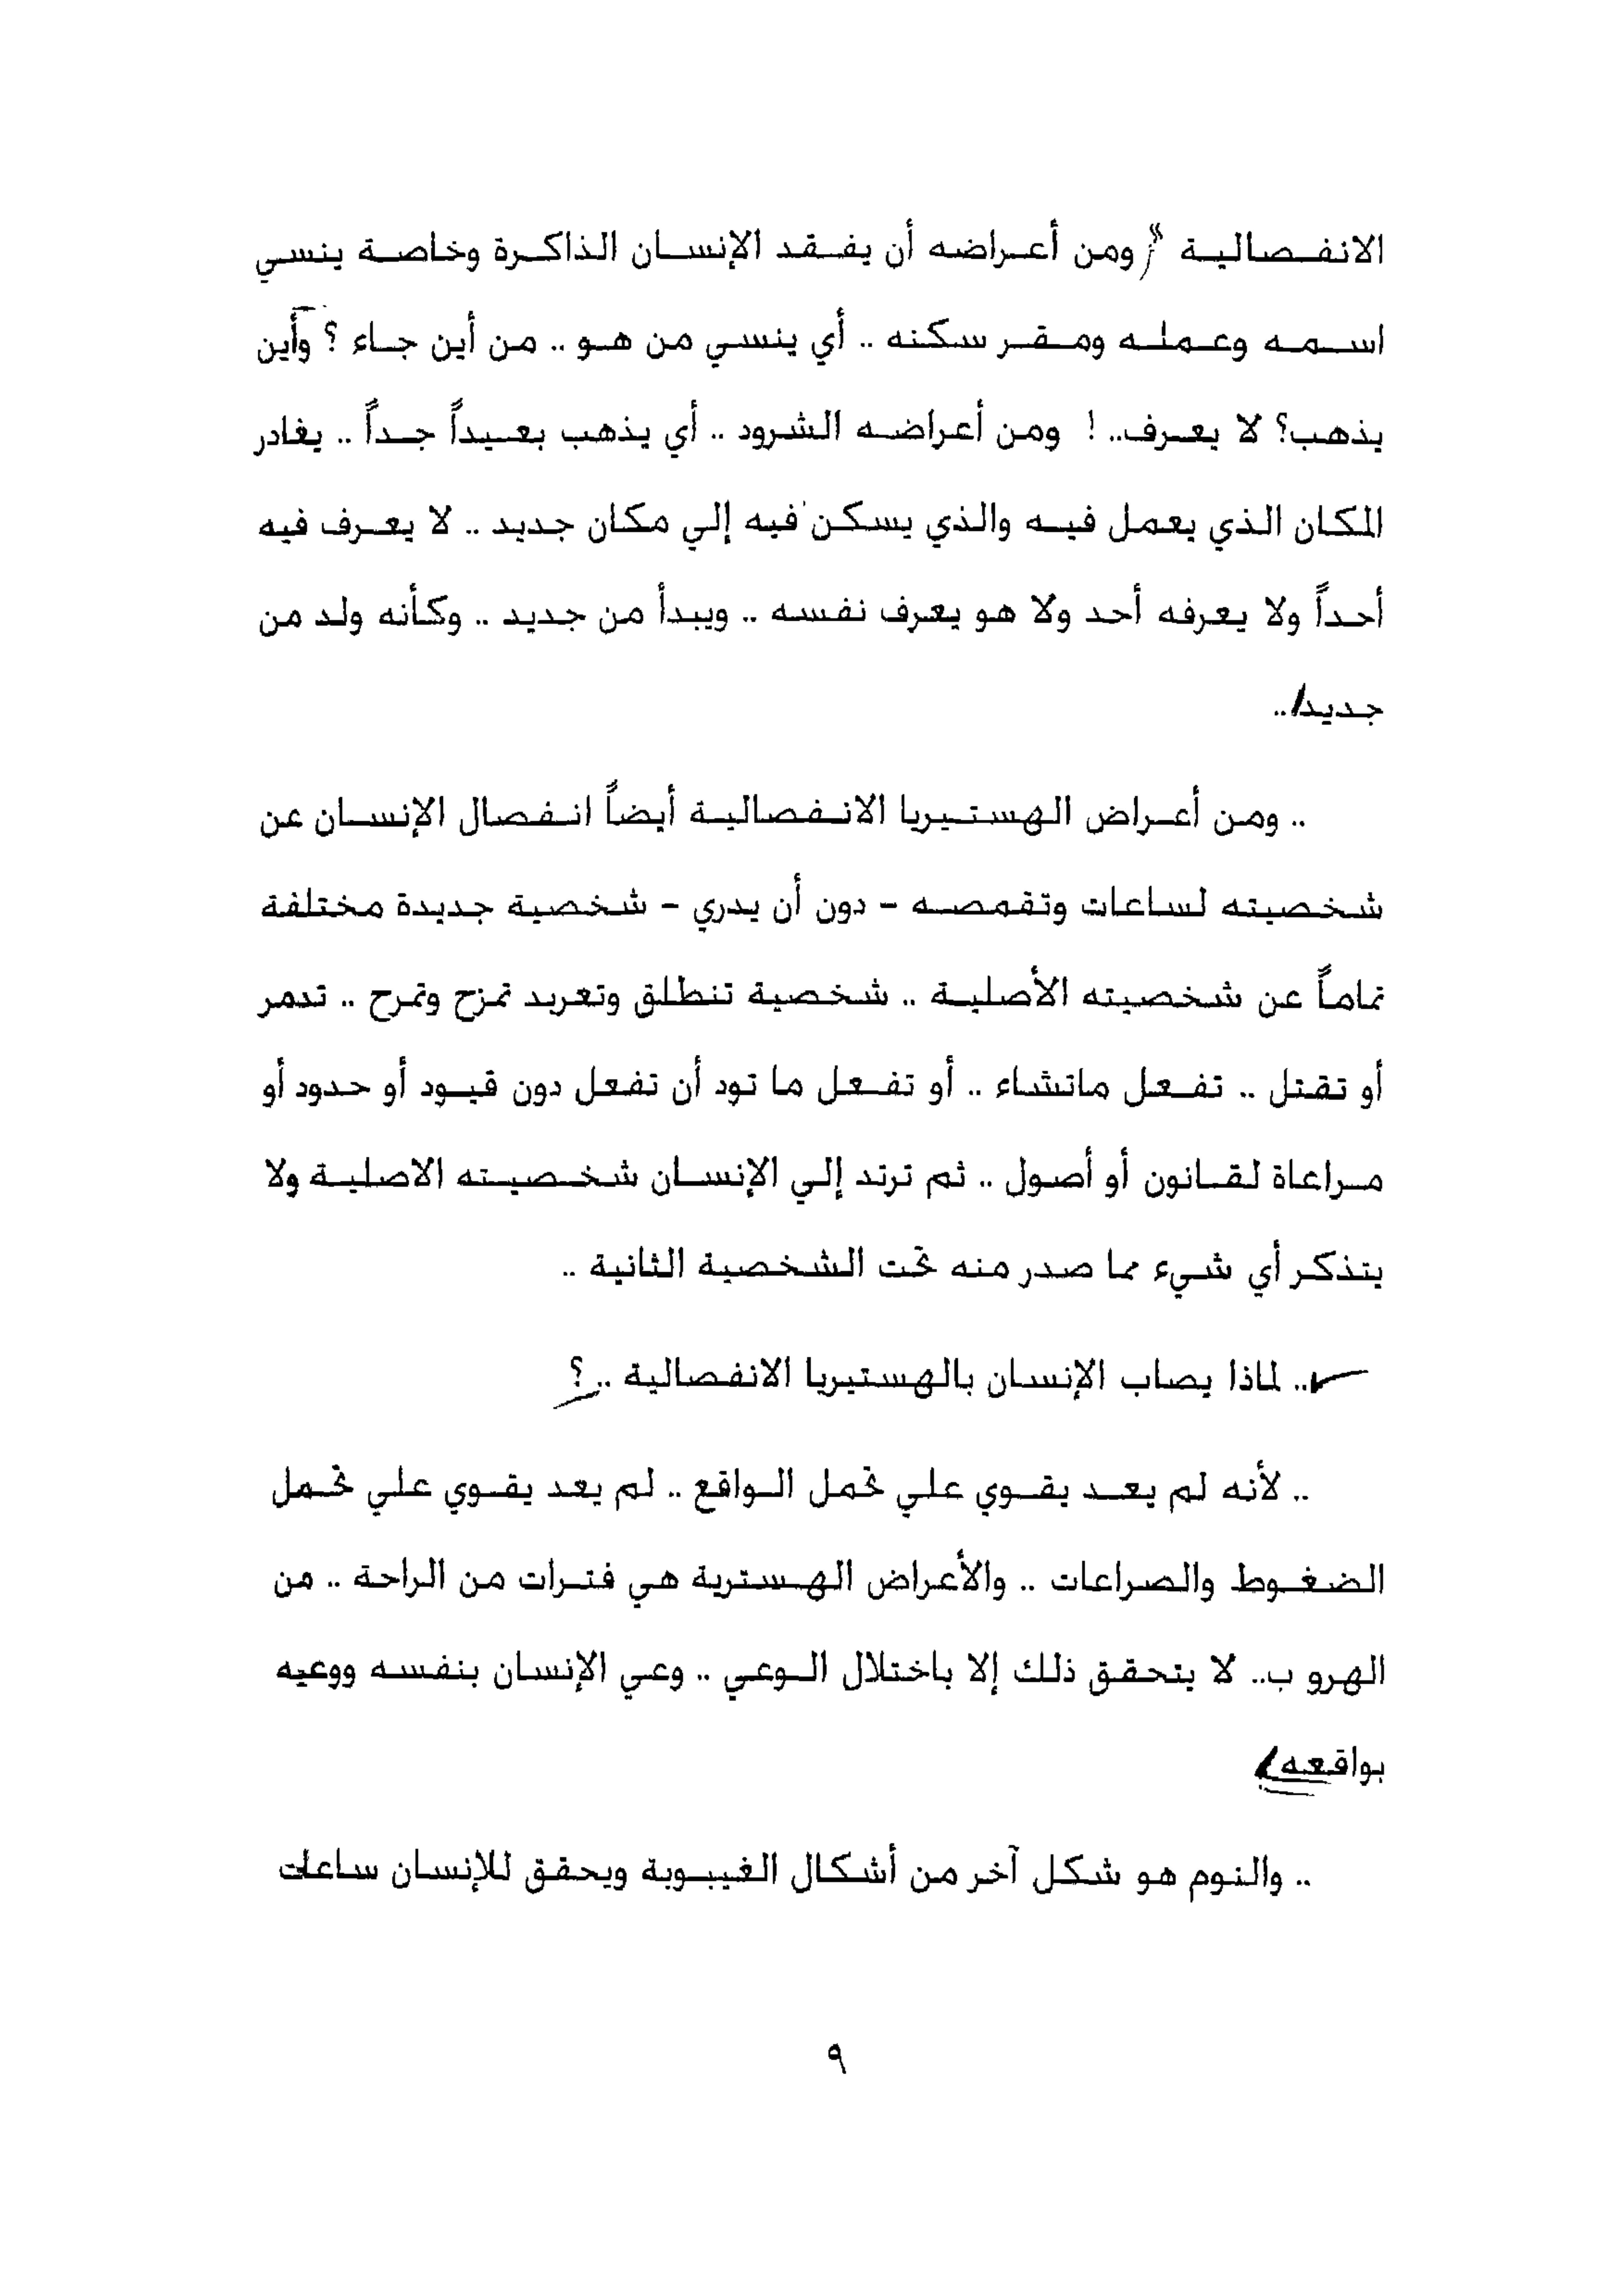 الانفصالية » ومن أعراضه أن يفقد الإنسان الذاكرة وخاصة ينسي
اسمه وعمله ومقر سكنه .. أي ينسي من هو .. من أين جاء ؟ وأين
يذهب؟ لا يعرف.. ! ومن أعراضه الشرود .. أي يذهب بعيداً جداً .. يغادر
المكان الذي يعمل فيه والذي يسكن فيه إلي مكان جديد .. لا يعرف فيه
أحداً ولا يعرفه أحد ولا هو يعرف نفسه .. ويبدأ من جديد .. وكأنه ولد من
جديد..
.. ومن أعراض الهستيريا الانفصالية أيضاً انفصال الإنسان عن
شخصيته لساعات وتقمصه - دون أن يدري - شخصية جديدة مختلفة
تماماً عن شخصيته الأصلية .. شخصية تنطلق وتعربد تمزح وتمرح .. تدمر
أو تقتل .. تفعل ماتشاء .. أو تفعل ما تود أن تفعل دون قيود أو حدود أو
مراعاة لقانون أو أصول .. ثم ترتد إلي الإنسان شخصيته الاصلية ولا
يتذكر أي شيء مما صدر منه تحت الشخصية الثانية ..
.. لماذا يصاب الإنسان بالهستيريا الانفصالية .. ؟
.. لأنه لم يعد يقوي علي تحمل الواقع .. لم يعد يقوي علي تحمل
الضغوط والصراعات .. والأعراض الهسترية هي فترات من الراحة .. من
الهرو ب.. لا يتحقق ذلك إلا باختلال الوعي .. وعي الإنسان بنفسه ووعيه
بواقعه
.. والنوم هو شكل آخر من أشكال الغيبوبة ويحقق للإنسان ساعات
٩